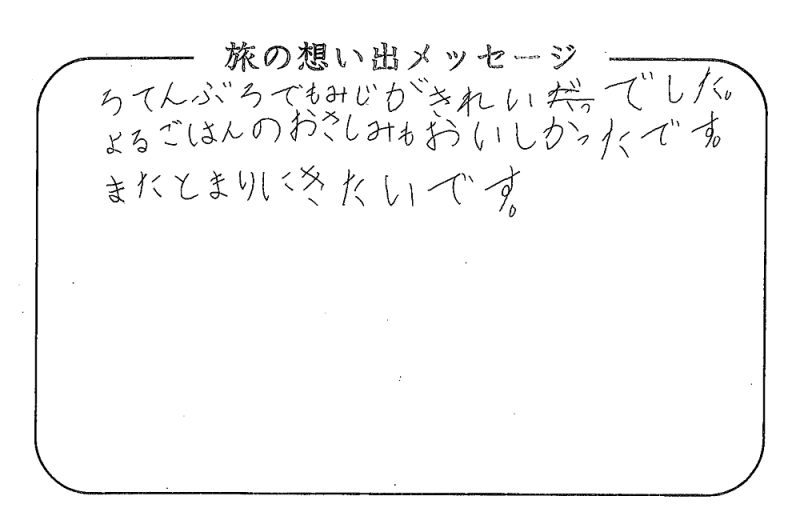 旅の想い出メッセージ
ろてんぶろでもみじがきれいでした。
よるごはんのおさしみもおいしかったです。
またとまりにきたいです。